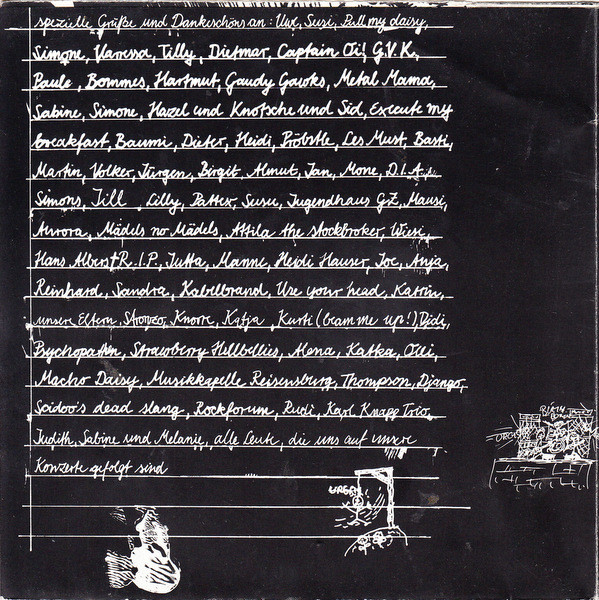 spezielle Grüße und Dankeschöns an: Uwe, Susi, Pull my daisy,
Simone, Vanessa, Tilly, Dietmar, Captain Oi! G.V.K,
Paule, Bommes, Hartmut, Gaudy Gawks, Metal Mama,
Sabine, Simone, Hazel und Knotsche und Sid, Execute my
breakfast, Baumi, Dieter, Heidi, Pröbstle, Les Must, Basti,
Martin, Volker, Jürgen, Birgit, Almut, Jan, Mone, D.I.A.,
Simons, Till, Lilly, Patter, Susu, Jugendhaus GZ, Mausi,
Aurora, Mädels no Mädels, Attila the stockbroker, Wiesi,
Hans Albers † R.I.P., Jutta, Manne, Heidi Hauser, Joe, Anja,
Reinhard, Sandra, Kabelbrand, Use your head, Katrin,
unsere Eltern, Stronzo, Knorre, Katja, Kurti (beam me up!), Didi,
Psychopathen, Strawberry Hellbellies, Alena, Katka, Olli,
Macho Daisy, Musikkapelle Reisensburg, Thompson, Django,
Scidoo's dead slang, Rockforum, Rudi, Karl Knapp Trio,
Judith, Sabine und Melanie, alle Leute, die uns auf unsere
Konzerte gefolgt sind